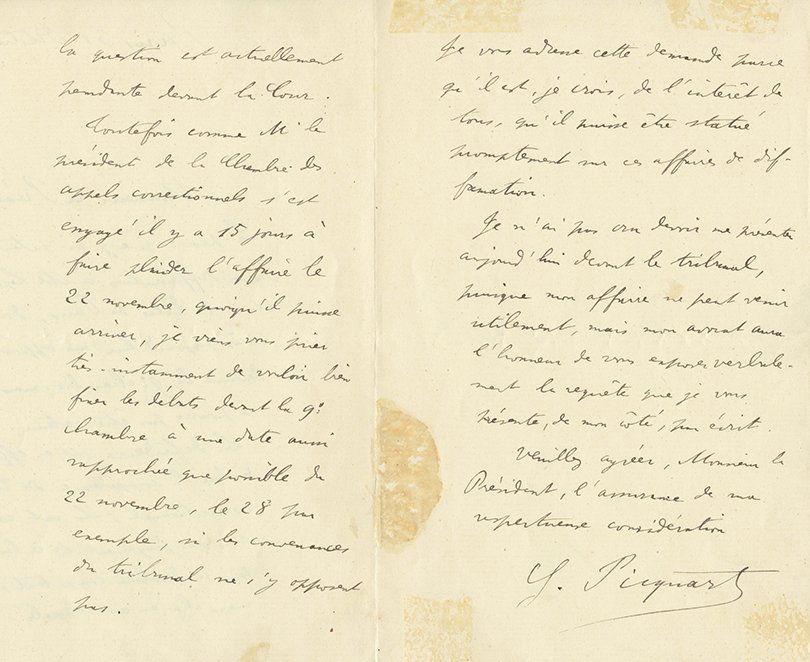 la question est actuellement
pendante devant la Cour.
Toutefois comme Mr le
président de la Chambre des
appels correctionnels s'est
engagé il y a 15 jours à
faire plaider l'affaire le
22 novembre, quoiqu'il puisse
arriver, je viens vous prier
très-instamment de vouloir bien
fixer les débats devant la 9e
chambre à une date aussi
rapprochée que possible du
22 novembre, le 28 par
exemple, si les convenances
du tribunal ne s'y opposent
pas.
Je vous adresse cette demande parce
qu'il est, je crois, de l'intérêt de
tous, qu'il puisse être statué
promptement sur ces affaires de dif-
famation.
Je n'ai pas cru devoir me présenter
aujourd'hui devant le tribunal,
puisque mon affaire ne peut venir
utilement, mais mon avocat aura
l'honneur de vous exposer verbale-
ment la requête que je vous
présente, de mon côté, par écrit.
Veuillez agréer, Monsieur le
Président, l'assurance de ma
respectueuse considération
G. Picquart